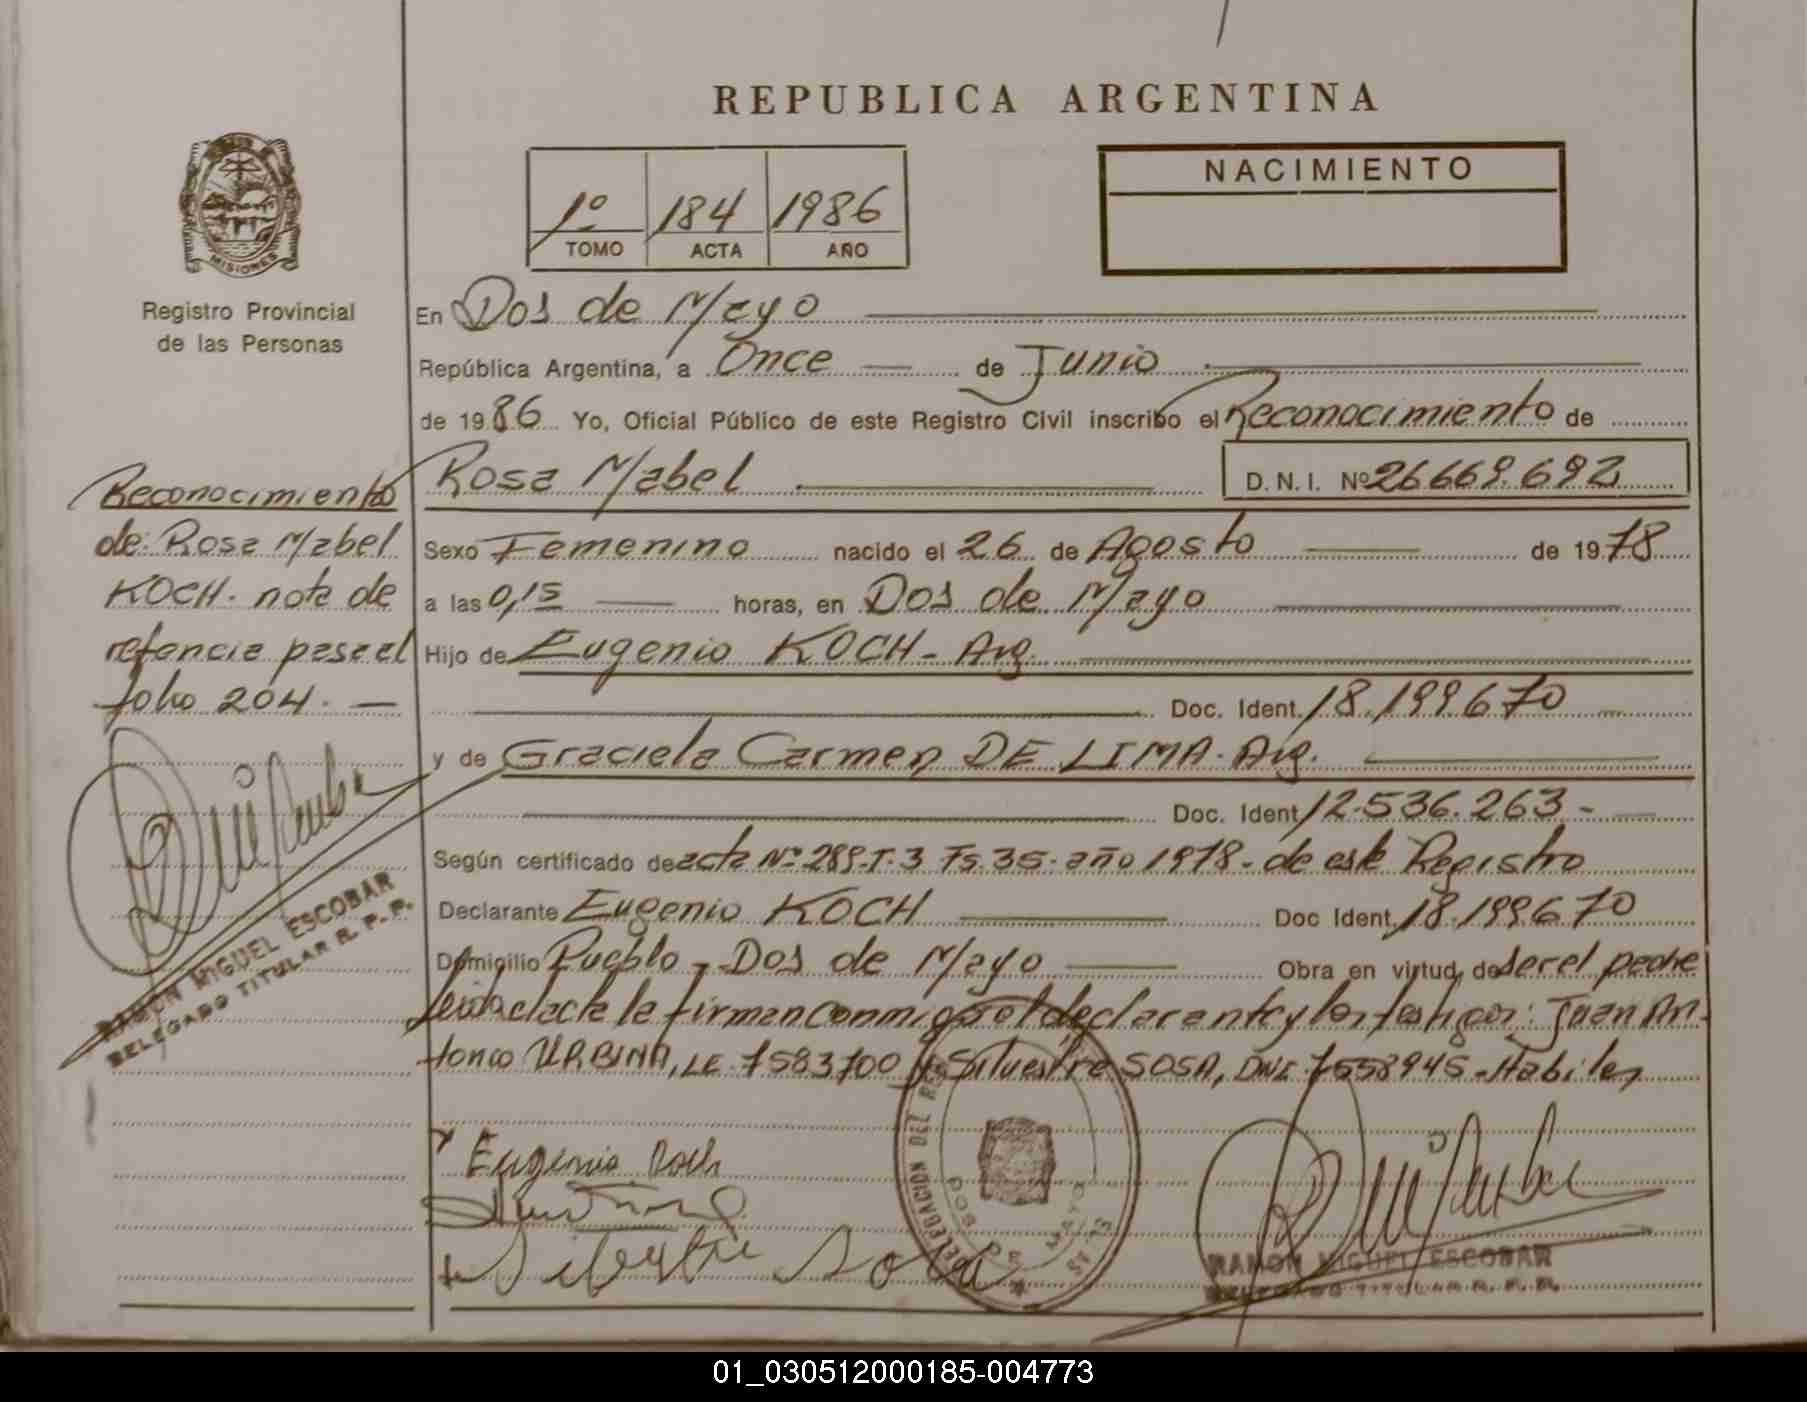 REPUBLICA ARGENTINA
1º 184 1986
TOMO ACTA AÑO
NACIMIENTO
MISIONES
Registro Provincial
de las Personas
En Dos de Mayo
República Argentina, a Once de Junio
de 1986 Yo, Oficial Público de este Registro Civil inscribo el Reconocimiento de
Rosa Mabel D. N. I. Nº 26.669.692
Sexo Femenino nacido el 26 de Agosto de 1978
a las 0,15 horas, en Dos de Mayo
Hijo de Eugenio KOCH - Arg.
Doc. Ident. 18.199.670
y de Graciela Carmen DE LIMA. Arg.
Doc. Ident. 12.536.263.-
Según certificado de acta Nº 289-T.3 Fs. 35- año 1978- de este Registro
Declarante Eugenio KOCH Doc Ident. 18.199670
Domicilio Pueblo - Dos de Mayo Obra en virtud de ser el padre
leida el acta la firman conmigo el declarante y los testigos: Juan An-
tonio URBINA, LE. 7583700 y Silvestre SOSA, DNI. 7558945-Habiles
Reconocimiento
de: Rosa Mabel
KOCH. nota de
refencia pasa el
folio 204. —
RAMON MIGUEL ESCOBAR
DELEGADO TITULAR R. P. P.
Eugenio Koch
Silbestre Sosa
DELEGACION DEL
DOS DE MAYO
RAMON MIGUEL ESCOBAR
DELEGADO TITULAR R. P. P.
01_030512000185-004773